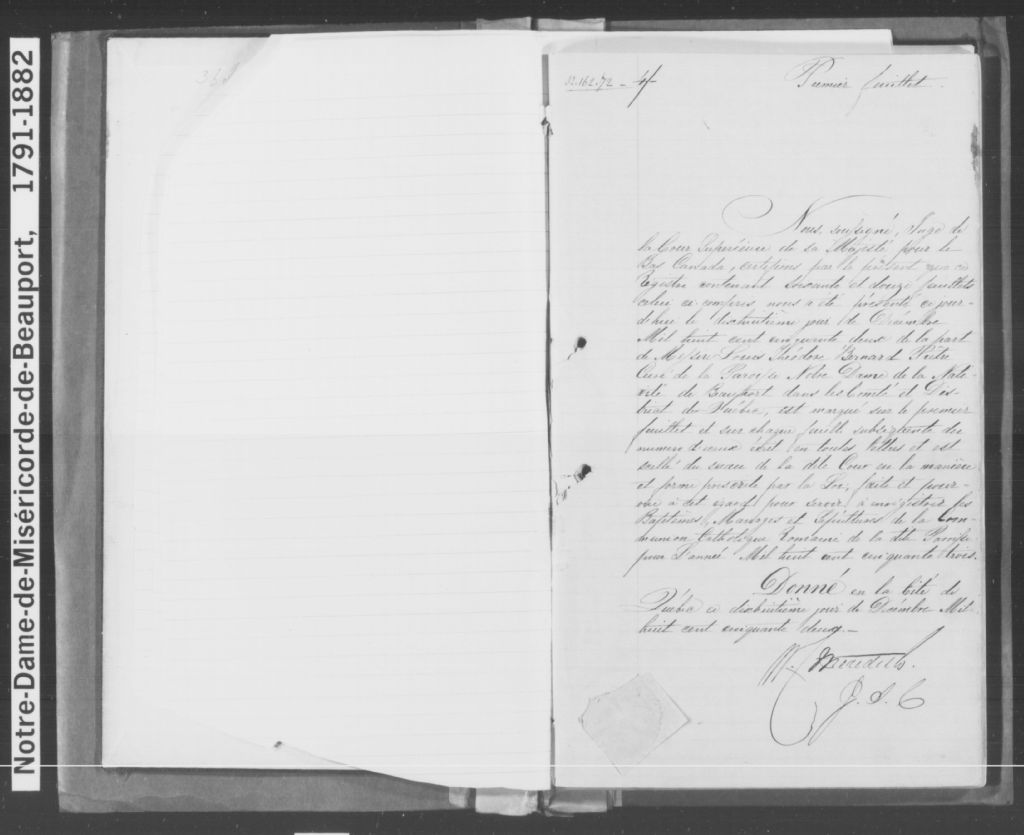 Notre-Dame-de-Miséricorde-de-Beauport, 1791-1882
Premier feuillet.
Nous, soussigné, Juge de
la Cour Supérieure de sa Majesté pour le
Bas Canada, certifions par le présent que ce
Régistre contenant soixante et douze feuillets
celui ci compris nous a été présenté ce jour-
d'hui le dixhuitième jour de Décembre
Mil huit cent cinquante deux de la part
de Messire Louis Théodore Bernard Prêtre
Curé de la Paroisse Notre Dame de la Nati-
vité de Beauport dans les Comté et Dis-
trict de Québec, est marqué sur le premier
feuillet et sur chaque feuille subséquente du
numéro d'iceux écrit en toutes lettres et est
scellé du sceau de la dite Cour en la manière
et forme prescrite par la Loi, faite et pour-
vue à cet égard pour servir à enregistrer les
Baptêmes, Mariages et Sépultures de la Com-
munion Catholique Romaine de la dite Paroisse
pour l'année Mil huit cent cinquante trois.
Donné en la Cité de
Québec ce dixhuitième jour de Décembre Mil
huit cent cinquante deux.—
W. Meredith.
J. S. C